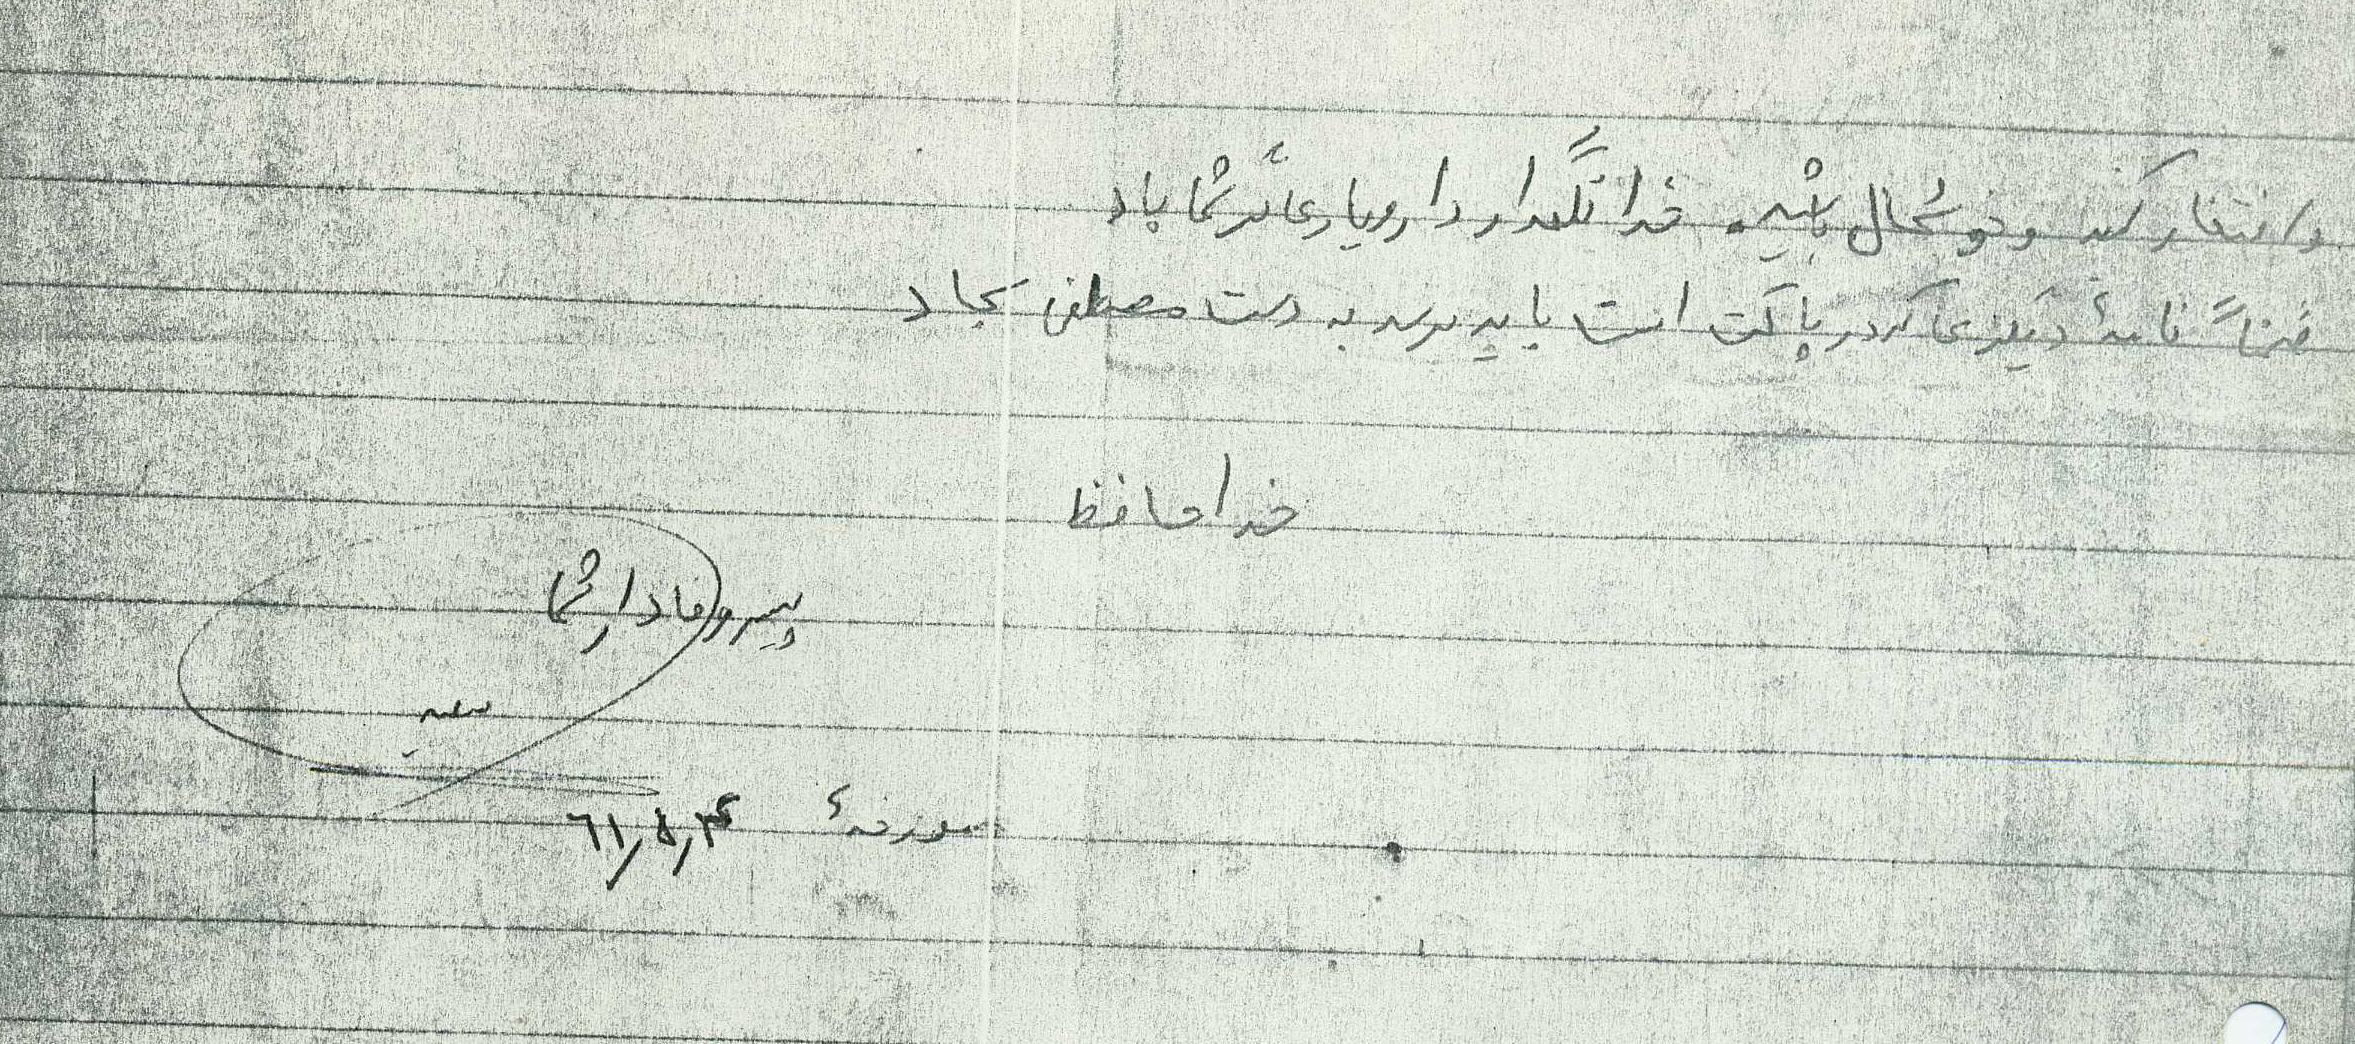 و افتخار کنید و خوشحال باشید. خدا نگهدار و یار همگی شما باد
ضمناً نامهٔ دیگری که در پاکت است باید برسد به دست مصطفی سجاد
خداحافظ
پسر وفادار شما
سعید
مورخهٔ ۶۱٫۵٫۴